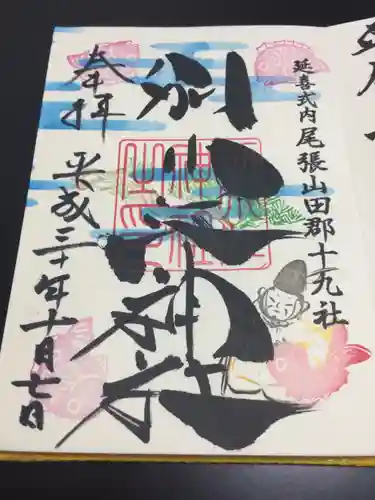 延喜式内尾張山田郡十九社
別小江神社
奉拝
平成三十年十月七日